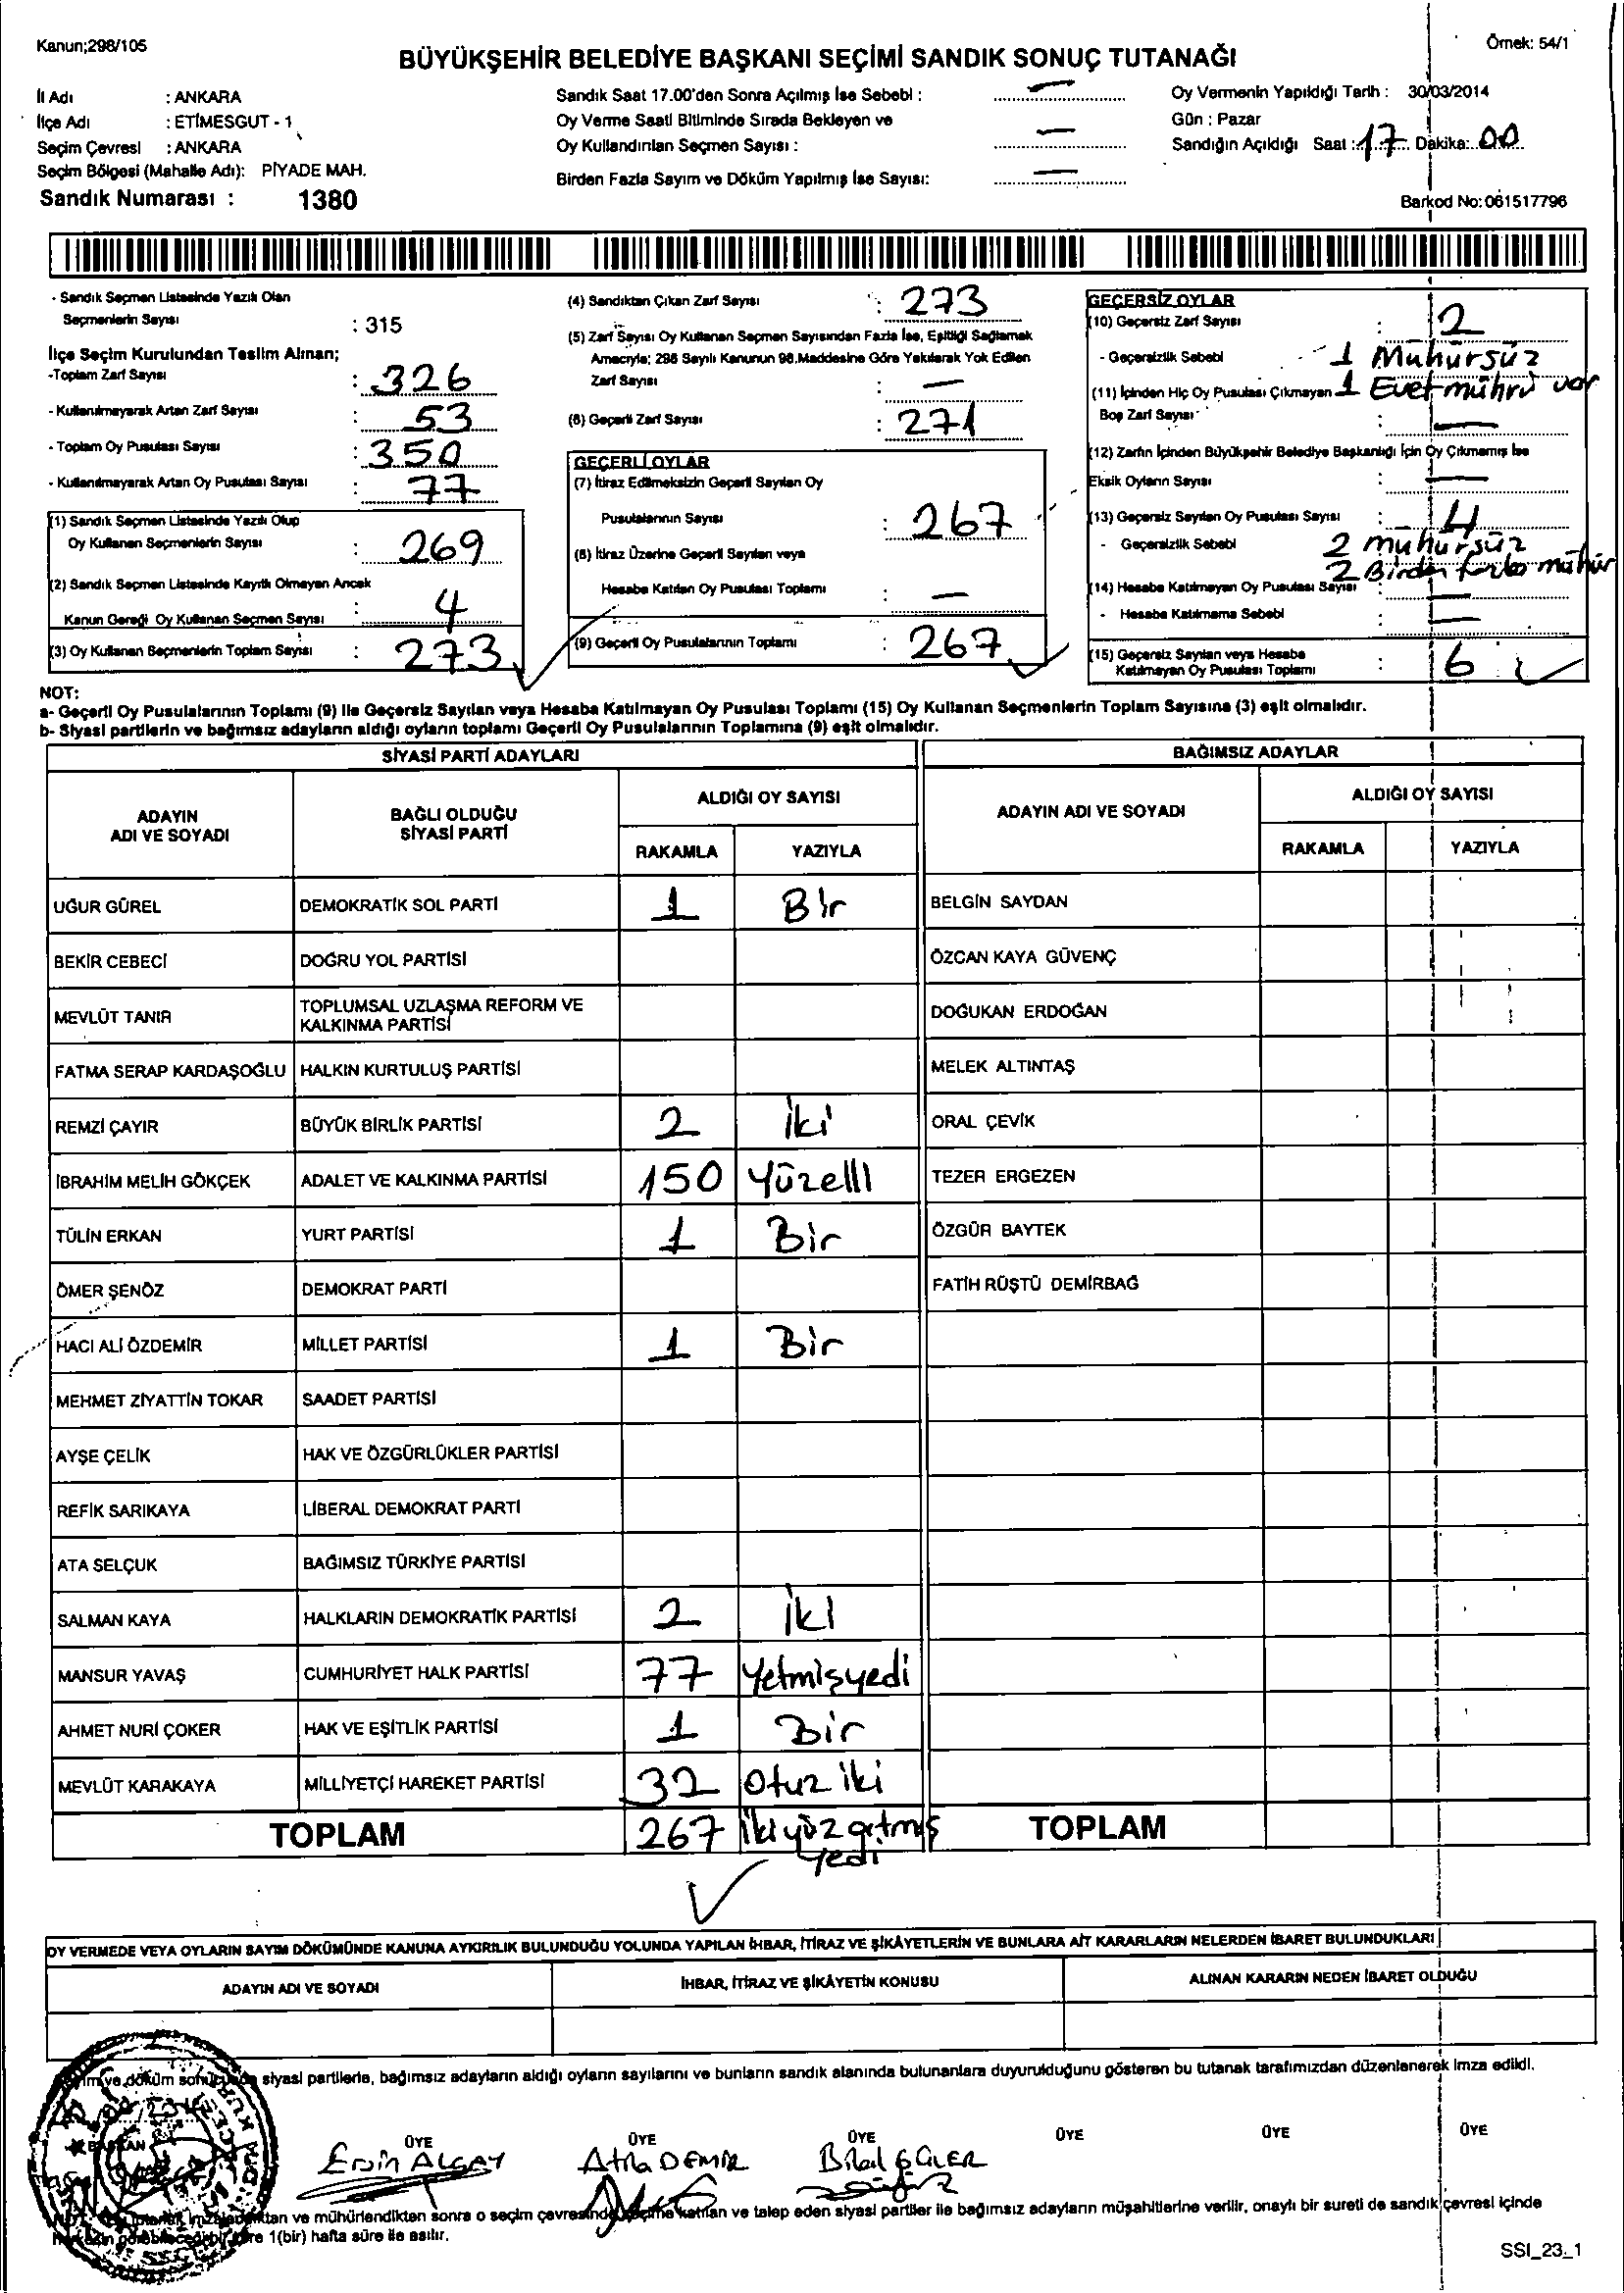 Kanun;298/105
Örnek: 54/1
BÜYÜKŞEHİR BELEDİYE BAŞKANI SEÇİMİ SANDIK SONUÇ TUTANAĞI
İl Adı : ANKARA
İlçe Adı : ETİMESGUT - 1
Seçim Çevresi : ANKARA
Seçim Bölgesi (Mahalle Adı): PİYADE MAH.
Sandık Numarası : 1380
Sandık Saat 17.00'den Sonra Açılmış İse Sebebi : —
Oy Verme Saati Bitiminde Sırada Bekleyen ve
Oy Kullandırılan Seçmen Sayısı : —
Birden Fazla Sayım ve Döküm Yapılmış İse Sayısı: —
Oy Vermenin Yapıldığı Tarih : 30/03/2014
Gün : Pazar
Sandığın Açıldığı Saat : 17 Dakika: 00
Barkod No: 061517796
- Sandık Seçmen Listesinde Yazılı Olan
Seçmenlerin Sayısı : 315
İlçe Seçim Kurulundan Teslim Alınan;
-Toplam Zarf Sayısı : 326
- Kullanılmayarak Artan Zarf Sayısı : 53
- Toplam Oy Pusulası Sayısı : 350
- Kullanılmayarak Artan Oy Pusulası Sayısı : 77
(1) Sandık Seçmen Listesinde Yazılı Olup
Oy Kullanan Seçmenlerin Sayısı : 269
(2) Sandık Seçmen Listesinde Kayıtlı Olmayan Ancak
Kanun Gereği Oy Kullanan Seçmen Sayısı : 4
(3) Oy Kullanan Seçmenlerin Toplam Sayısı : 273
(4) Sandıktan Çıkan Zarf Sayısı : 273
(5) Zarf Sayısı Oy Kullanan Seçmen Sayısından Fazla İse, Eşitliği Sağlamak
Amacıyla; 298 Sayılı Kanunun 98.Maddesine Göre Yakılarak Yok Edilen
Zarf Sayısı : —
(6) Geçerli Zarf Sayısı : 271
GEÇERLİ OYLAR
(7) İtiraz Edilmeksizin Geçerli Sayılan Oy
Pusulalarının Sayısı : 267
(8) İtiraz Üzerine Geçerli Sayılan veya
Hesaba Katılan Oy Pusulası Toplamı : —
(9) Geçerli Oy Pusulalarının Toplamı : 267
GEÇERSİZ OYLAR
(10) Geçersiz Zarf Sayısı : 2
- Geçersizlik Sebebi 1 Mühürsüz
1 Evet mührü var
(11) İçinden Hiç Oy Pusulası Çıkmayan
Boş Zarf Sayısı : —
(12) Zarfın İçinden Büyükşehir Belediye Başkanlığı İçin Oy Çıkmamış İse
Eksik Oyların Sayısı : —
(13) Geçersiz Sayılan Oy Pusulası Sayısı : 4
- Geçersizlik Sebebi 2 mühürsüz
2 Birden fazla mühür
(14) Hesaba Katılmayan Oy Pusulası Sayısı : —
- Hesaba Katılmama Sebebi : —
(15) Geçersiz Sayılan veya Hesaba
Katılmayan Oy Pusulası Toplamı : 6
NOT:
a- Geçerli Oy Pusulalarının Toplamı (9) ile Geçersiz Sayılan veya Hesaba Katılmayan Oy Pusulası Toplamı (15) Oy Kullanan Seçmenlerin Toplam Sayısına (3) eşit olmalıdır.
b- Siyasi partilerin ve bağımsız adayların aldığı oyların toplamı Geçerli Oy Pusulalarının Toplamına (9) eşit olmalıdır.
SİYASİ PARTİ ADAYLARI
BAĞIMSIZ ADAYLAR
ADAYIN
ADI VE SOYADI
BAĞLI OLDUĞU
SİYASİ PARTİ
ALDIĞI OY SAYISI
RAKAMLA YAZIYLA
ADAYIN ADI VE SOYADI
ALDIĞI OY SAYISI
RAKAMLA YAZIYLA
UĞUR GÜREL DEMOKRATİK SOL PARTİ 1 Bir BELGİN SAYDAN
BEKİR CEBECİ DOĞRU YOL PARTİSİ ÖZCAN KAYA GÜVENÇ
MEVLÜT TANIR TOPLUMSAL UZLAŞMA REFORM VE
KALKINMA PARTİSİ DOĞUKAN ERDOĞAN
FATMA SERAP KARDAŞOĞLU HALKIN KURTULUŞ PARTİSİ MELEK ALTINTAŞ
REMZİ ÇAYIR BÜYÜK BİRLİK PARTİSİ 2 İki ORAL ÇEVİK
İBRAHİM MELİH GÖKÇEK ADALET VE KALKINMA PARTİSİ 150 Yüzelli TEZER ERGEZEN
TÜLİN ERKAN YURT PARTİSİ 1 Bir ÖZGÜR BAYTEK
ÖMER ŞENÖZ DEMOKRAT PARTİ FATİH RÜŞTÜ DEMİRBAĞ
HACI ALİ ÖZDEMİR MİLLET PARTİSİ 1 Bir
MEHMET ZİYATTİN TOKAR SAADET PARTİSİ
AYŞE ÇELİK HAK VE ÖZGÜRLÜKLER PARTİSİ
REFİK SARIKAYA LİBERAL DEMOKRAT PARTİ
ATA SELÇUK BAĞIMSIZ TÜRKİYE PARTİSİ
SALMAN KAYA HALKLARIN DEMOKRATİK PARTİSİ 2 İki
MANSUR YAVAŞ CUMHURİYET HALK PARTİSİ 77 Yetmişyedi
AHMET NURİ ÇOKER HAK VE EŞİTLİK PARTİSİ 1 Bir
MEVLÜT KARAKAYA MİLLİYETÇİ HAREKET PARTİSİ 32 Otuz iki
TOPLAM 267 İkiyüz
yedi TOPLAM
OY VERMEDE VEYA OYLARIN SAYIM DÖKÜMÜNDE KANUNA AYKIRILIK BULUNDUĞU YOLUNDA YAPILAN İHBAR, İTİRAZ VE ŞİKÂYETLERİN VE BUNLARA AİT KARARLARIN NELERDEN İBARET BULUNDUKLARI
ADAYIN ADI VE SOYADI İHBAR, İTİRAZ VE ŞİKÂYETİN KONUSU ALINAN KARARIN NEDEN İBARET OLDUĞU
ve döküm siyasi partilerle, bağımsız adayların aldığı oyların sayılarını ve bunların sandık alanında bulunanlara duyurulduğunu gösteren bu tutanak tarafımızdan düzenlenerek imza edildi.
BAŞKAN ÜYE ÜYE ÜYE ÜYE ÜYE ÜYE
DEMİR
ve mühürlendikten sonra o seçim katılan ve talep eden siyasi partiler ile bağımsız adayların müşahitlerine verilir, onaylı bir sureti de sandık çevresi içinde
1(bir) hafta süre ile asılır.
SSI_23_1